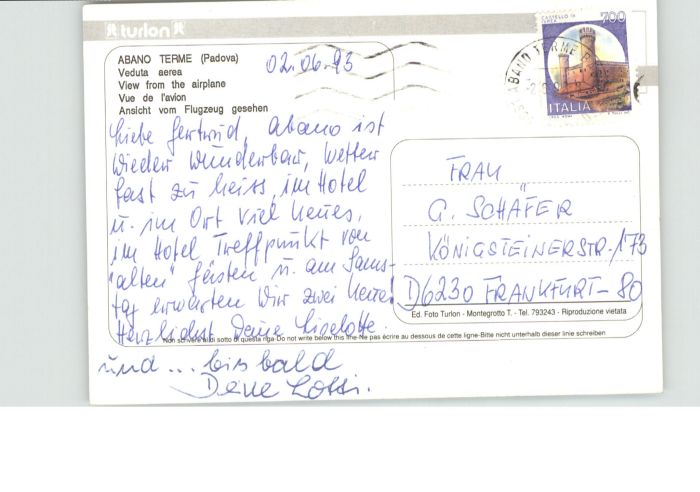 turlon
ABANO TERME (Padova)
Veduta aerea
View from the airplane
Vue de l'avion
Ansicht vom Flugzeug gesehen
02.06.93
CASTELLO DI
IVREA
700
ITALIA
ABANO TERME
Liebe Gertrud, Abano ist
wieder wunderbar, Wetter
fast zu heiss, im Hotel
u. im Ort viel neues,
im Hotel Treffpunkt von
"alten" Gästen u. am Sams-
tag erwarten wir zwei neue!
Herzlichst Deine Liselotte
und ... bis bald
Deine Lossi.
FRAU
G. SCHÄFER
KÖNIGSTEINERSTR. 173
D6230 FRANKFURT-80
Ed. Foto Turlon - Montegrotto T. - Tel. 793243 - Riproduzione vietata
Non scrivere di sotto di questa riga-Do not write below this line-Ne pas écrire au dessous de cette ligne-Bitte nicht unterhalb dieser linie schreiben